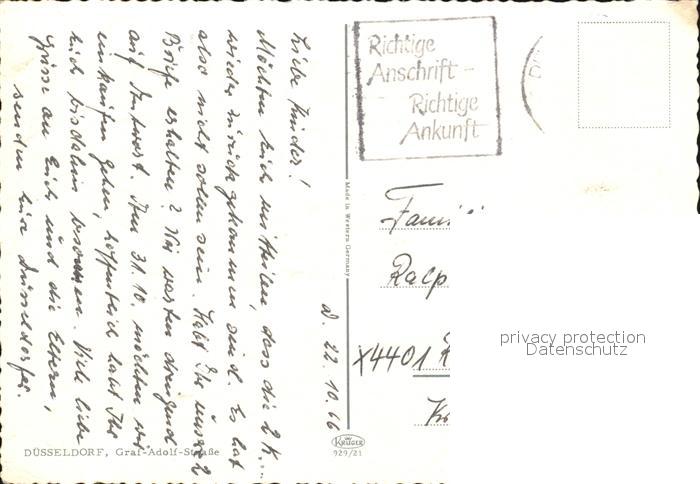 Richtige
Anschrift -
Richtige
Ankunft
D. 22. 10. 66
Liebe Kinder!
Möchten Euch mitteilen, dass die 2 K...
wieder zurückgekommen sind. Es hat
also nicht sollen sein. Habt Ihr unsere 2
Briefe erhalten? Wir warten dringend
auf Antwort. Am 31.10. möchten wir
einkaufen gehen, hoffentlich habt Ihr
Euch bis dahin besonnen. Viele liebe
Grüsse an Euch und die Eltern,
senden Eure Düsseldorfer.
Made in Western Germany
Fami
Ralp
x4401
DÜSSELDORF, Graf-Adolf-Straße
KRÜGER
929/21
privacy protection
Datenschutz